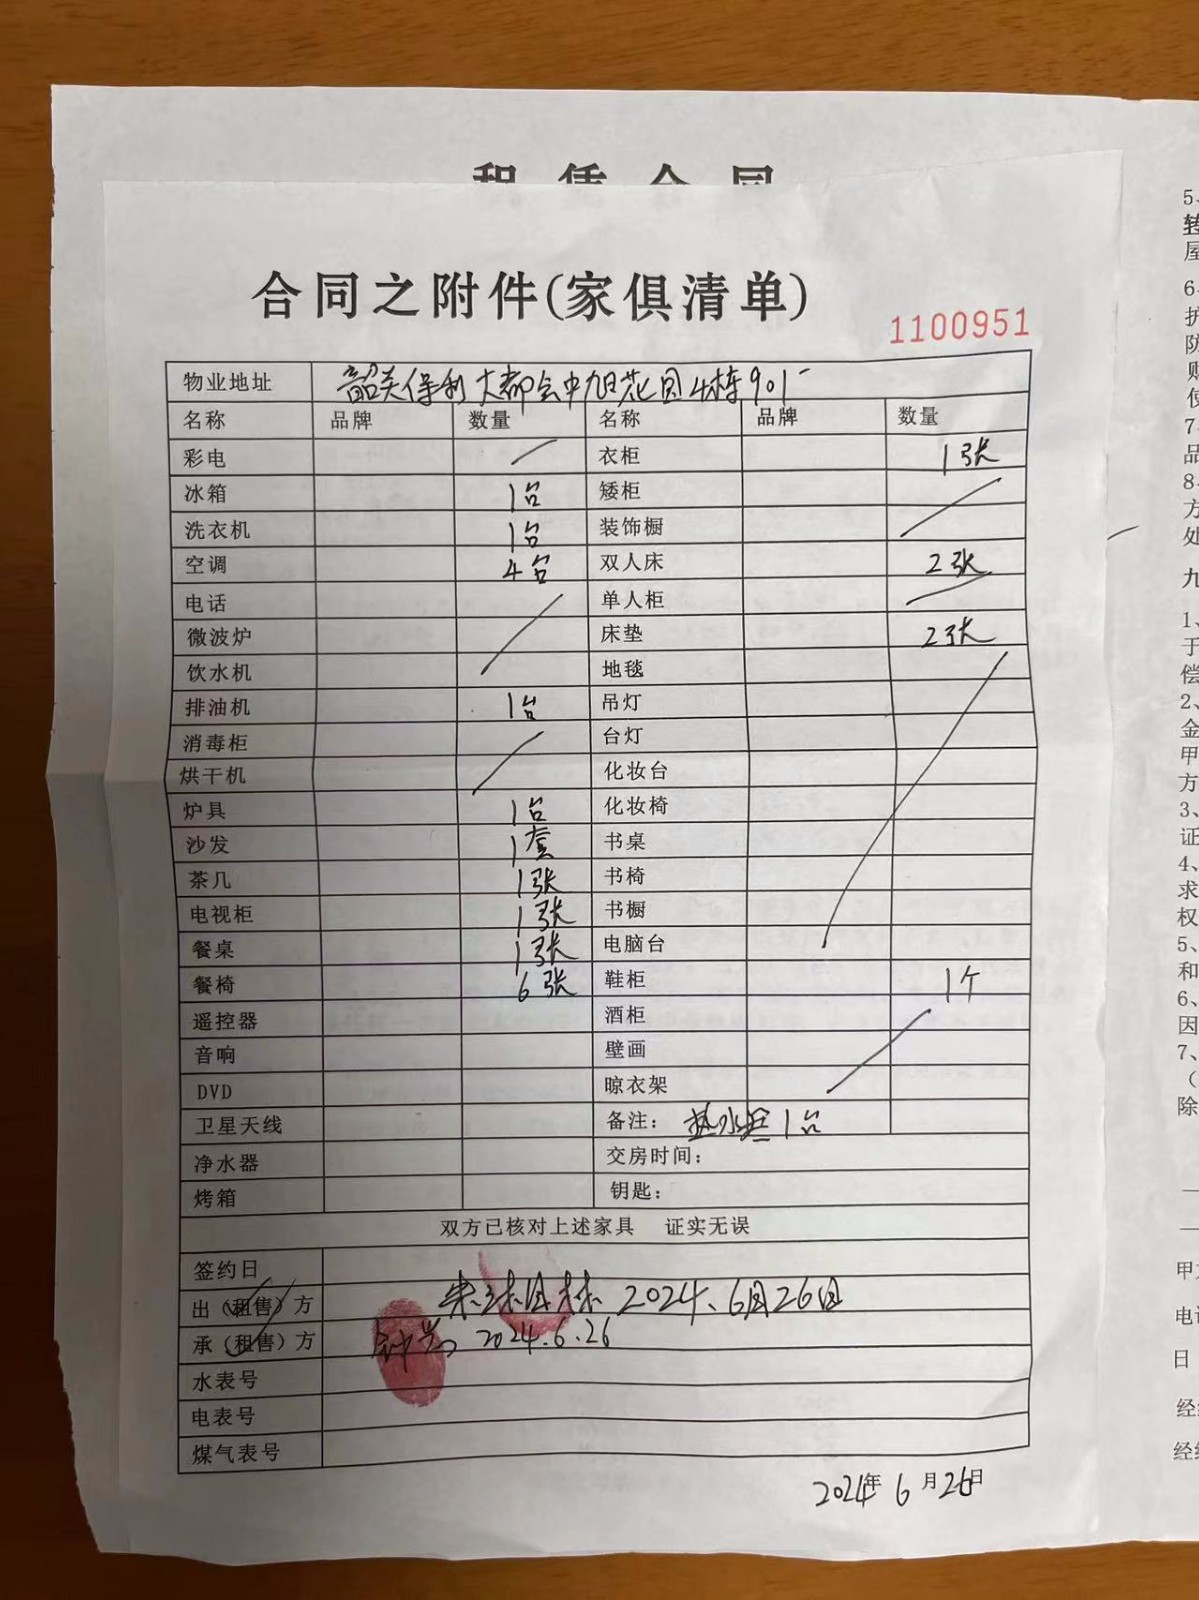 租赁合同
合同之附件(家俱清单)
1100951
物业地址 韶关保利大都会中旭花园4栋901
名称 品牌 数量 名称 品牌 数量
彩电 衣柜 1张
冰箱 1台 矮柜
洗衣机 1台 装饰橱
空调 4台 双人床 2张
电话 单人柜
微波炉 床垫 2张
饮水机 地毯
排油机 1台 吊灯
消毒柜 台灯
烘干机 化妆台
炉具 1台 化妆椅
沙发 1套 书桌
茶几 1张 书椅
电视柜 1张 书橱
餐桌 1张 电脑台
餐椅 6张 鞋柜 1个
遥控器 酒柜
音响 壁画
DVD 晾衣架
卫星天线 备注: 热水 1台
净水器 交房时间:
烤箱 钥匙:
双方已核对上述家具 证实无误
签约日
出(租售)方 2024.6月26日
承(租售)方 2024.6.26
水表号
电表号
煤气表号
2024年6月26日
5、
转
屋
6、
护
防
使
7、
品
8、
方
处
九
1、
于
偿
2、
金
甲
方
3、
证
4、
求
权
5、
和
6、
因
7、
(
除
甲
电
日
经
经